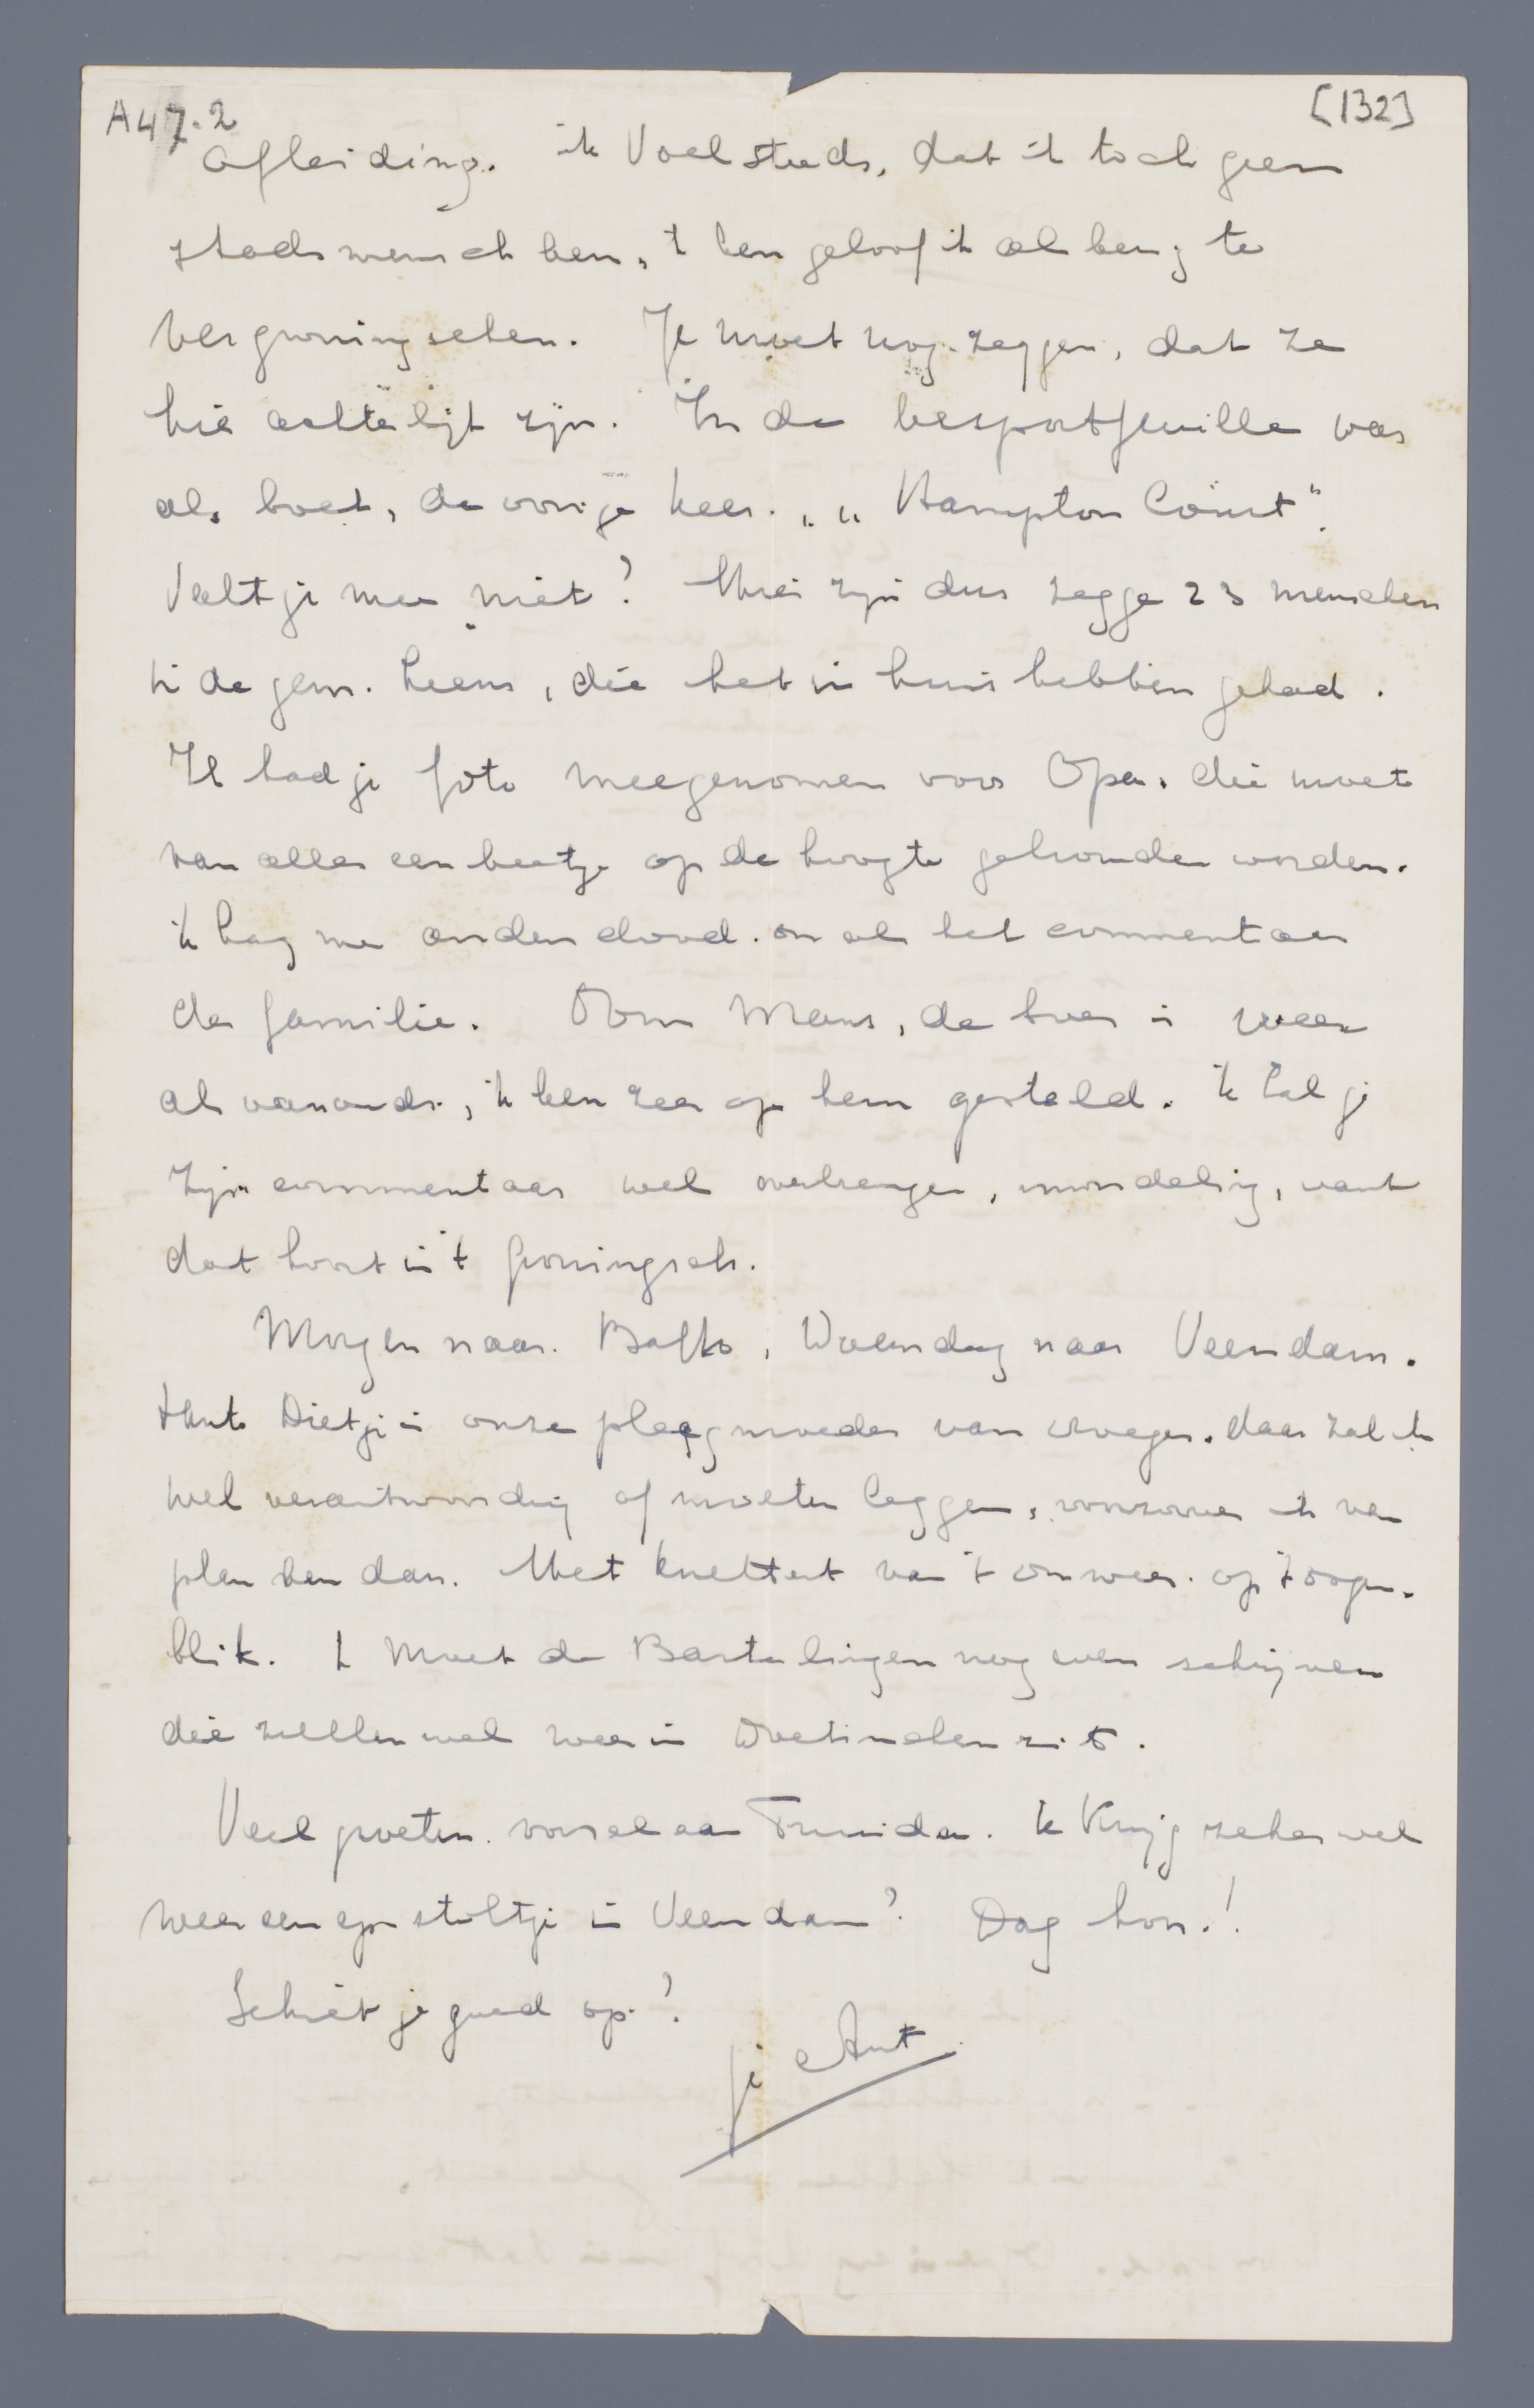 A47.2
[132]
afleiding. ik Voel steeds, dat ik toch geen
stadsmensch ben, 'k ben geloof ik al bezig te
vergroningschen. Je moet nog zeggen, dat ze
hier achterlijk zijn. In de leesportefeuille was
als boek, de vorige keer. „ „ Hampton Court".
Valt je mee niet? Hier zijn dus zegge 23 menschen
in de gem. Leens, die het in huis hebben gehad.
Ik had je foto meegenomen voor Opa, die moet
van alles een beetje op de hoogte gehouden worden.
ik lag me onderdoor om al het commentaar
der familie. Oom Mans, de boer is weer
als vanouds, ik ben zeer op hem gesteld. ik zal je
zijn commentaar wel overbrengen, mondeling, want
dat hoort in 't Groningsch.
Morgen naar Baflo, Woensdag naar Veendam.
tante Dietje is onze pleegmoeder van vroeger. daar zal ik
wel verantwoording af moeten leggen, voorzover ik van
plan ben dan. Het knettert van 't onweer op 't oogen-
blik. k Moet de Bartelingen nog even schrijven
die zullen wel weer in Doetinchem zit.
Veel groeten vooral aan Truida. ik Krijg zeker wel
weer een epistoltje in Veendam? Dag hoor!
Schiet je goed op?
je Ant